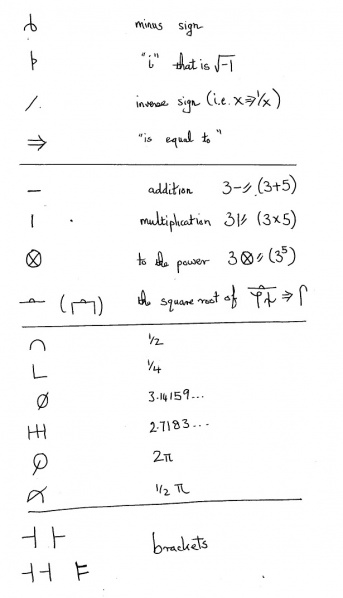 minus sign
"i" that is √-1
/. inverse sign (i.e. x ⇒ 1/x)
⇒ "is equal to"
— addition (3+5)
| multiplication (3×5)
⊗ to the power (3⁵)
the square root of
∩ 1/2
L 1/4
Ø 3.14159...
2.7183...
2π
1/2 π
⊣ ⊢ brackets
⊣⊣